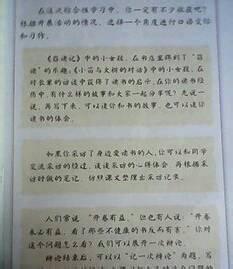 在这次综合性学习中，你一定有不少收获吧？
根据开展活动的情况，选择一个角度进行口语交际
和习作。
《窃读记》中的小女孩，在书店里得到了“窃
读”的乐趣，《小苗与大树的对话》中的小苗，在
对长辈的访谈中获得了读书的启示，在你的读书经历
中，有什么样的故事和大家一起分享呢？先说一
说，再写下来，可以谈你和书的故事，也可以谈你
读书的体会。
如果你采访了身边爱读书的人，你可以和同学
交流采访的经过，谈谈采访的心得体会，再根据采
访时做的笔记，仿照课文整理出采访记录。
人们常说“开卷有益”，但也有人说：“开卷
未必有益，看了那些不健康的书反而有害。”你对
这个问题怎么看？我们可以展开一次辩论。
辩论结束后，可以以“记一次辩论”为题，写